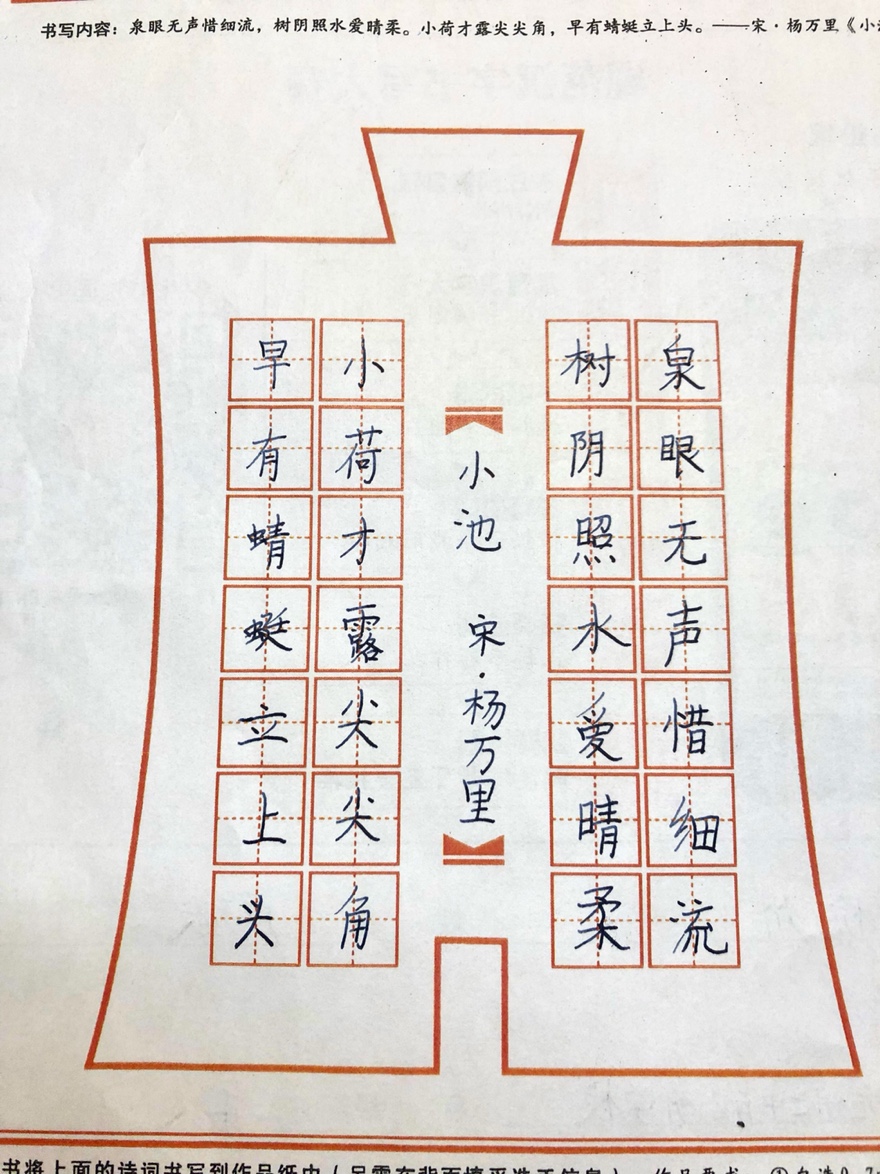 书写内容：泉眼无声惜细流，树阴照水爱晴柔。小荷才露尖尖角，早有蜻蜓立上头。——宋·杨万里《小
泉眼无声惜细流
树阴照水爱晴柔
小池 宋·杨万里
小荷才露尖尖角
早有蜻蜓立上头
书将上面的诗词书写到作品纸中